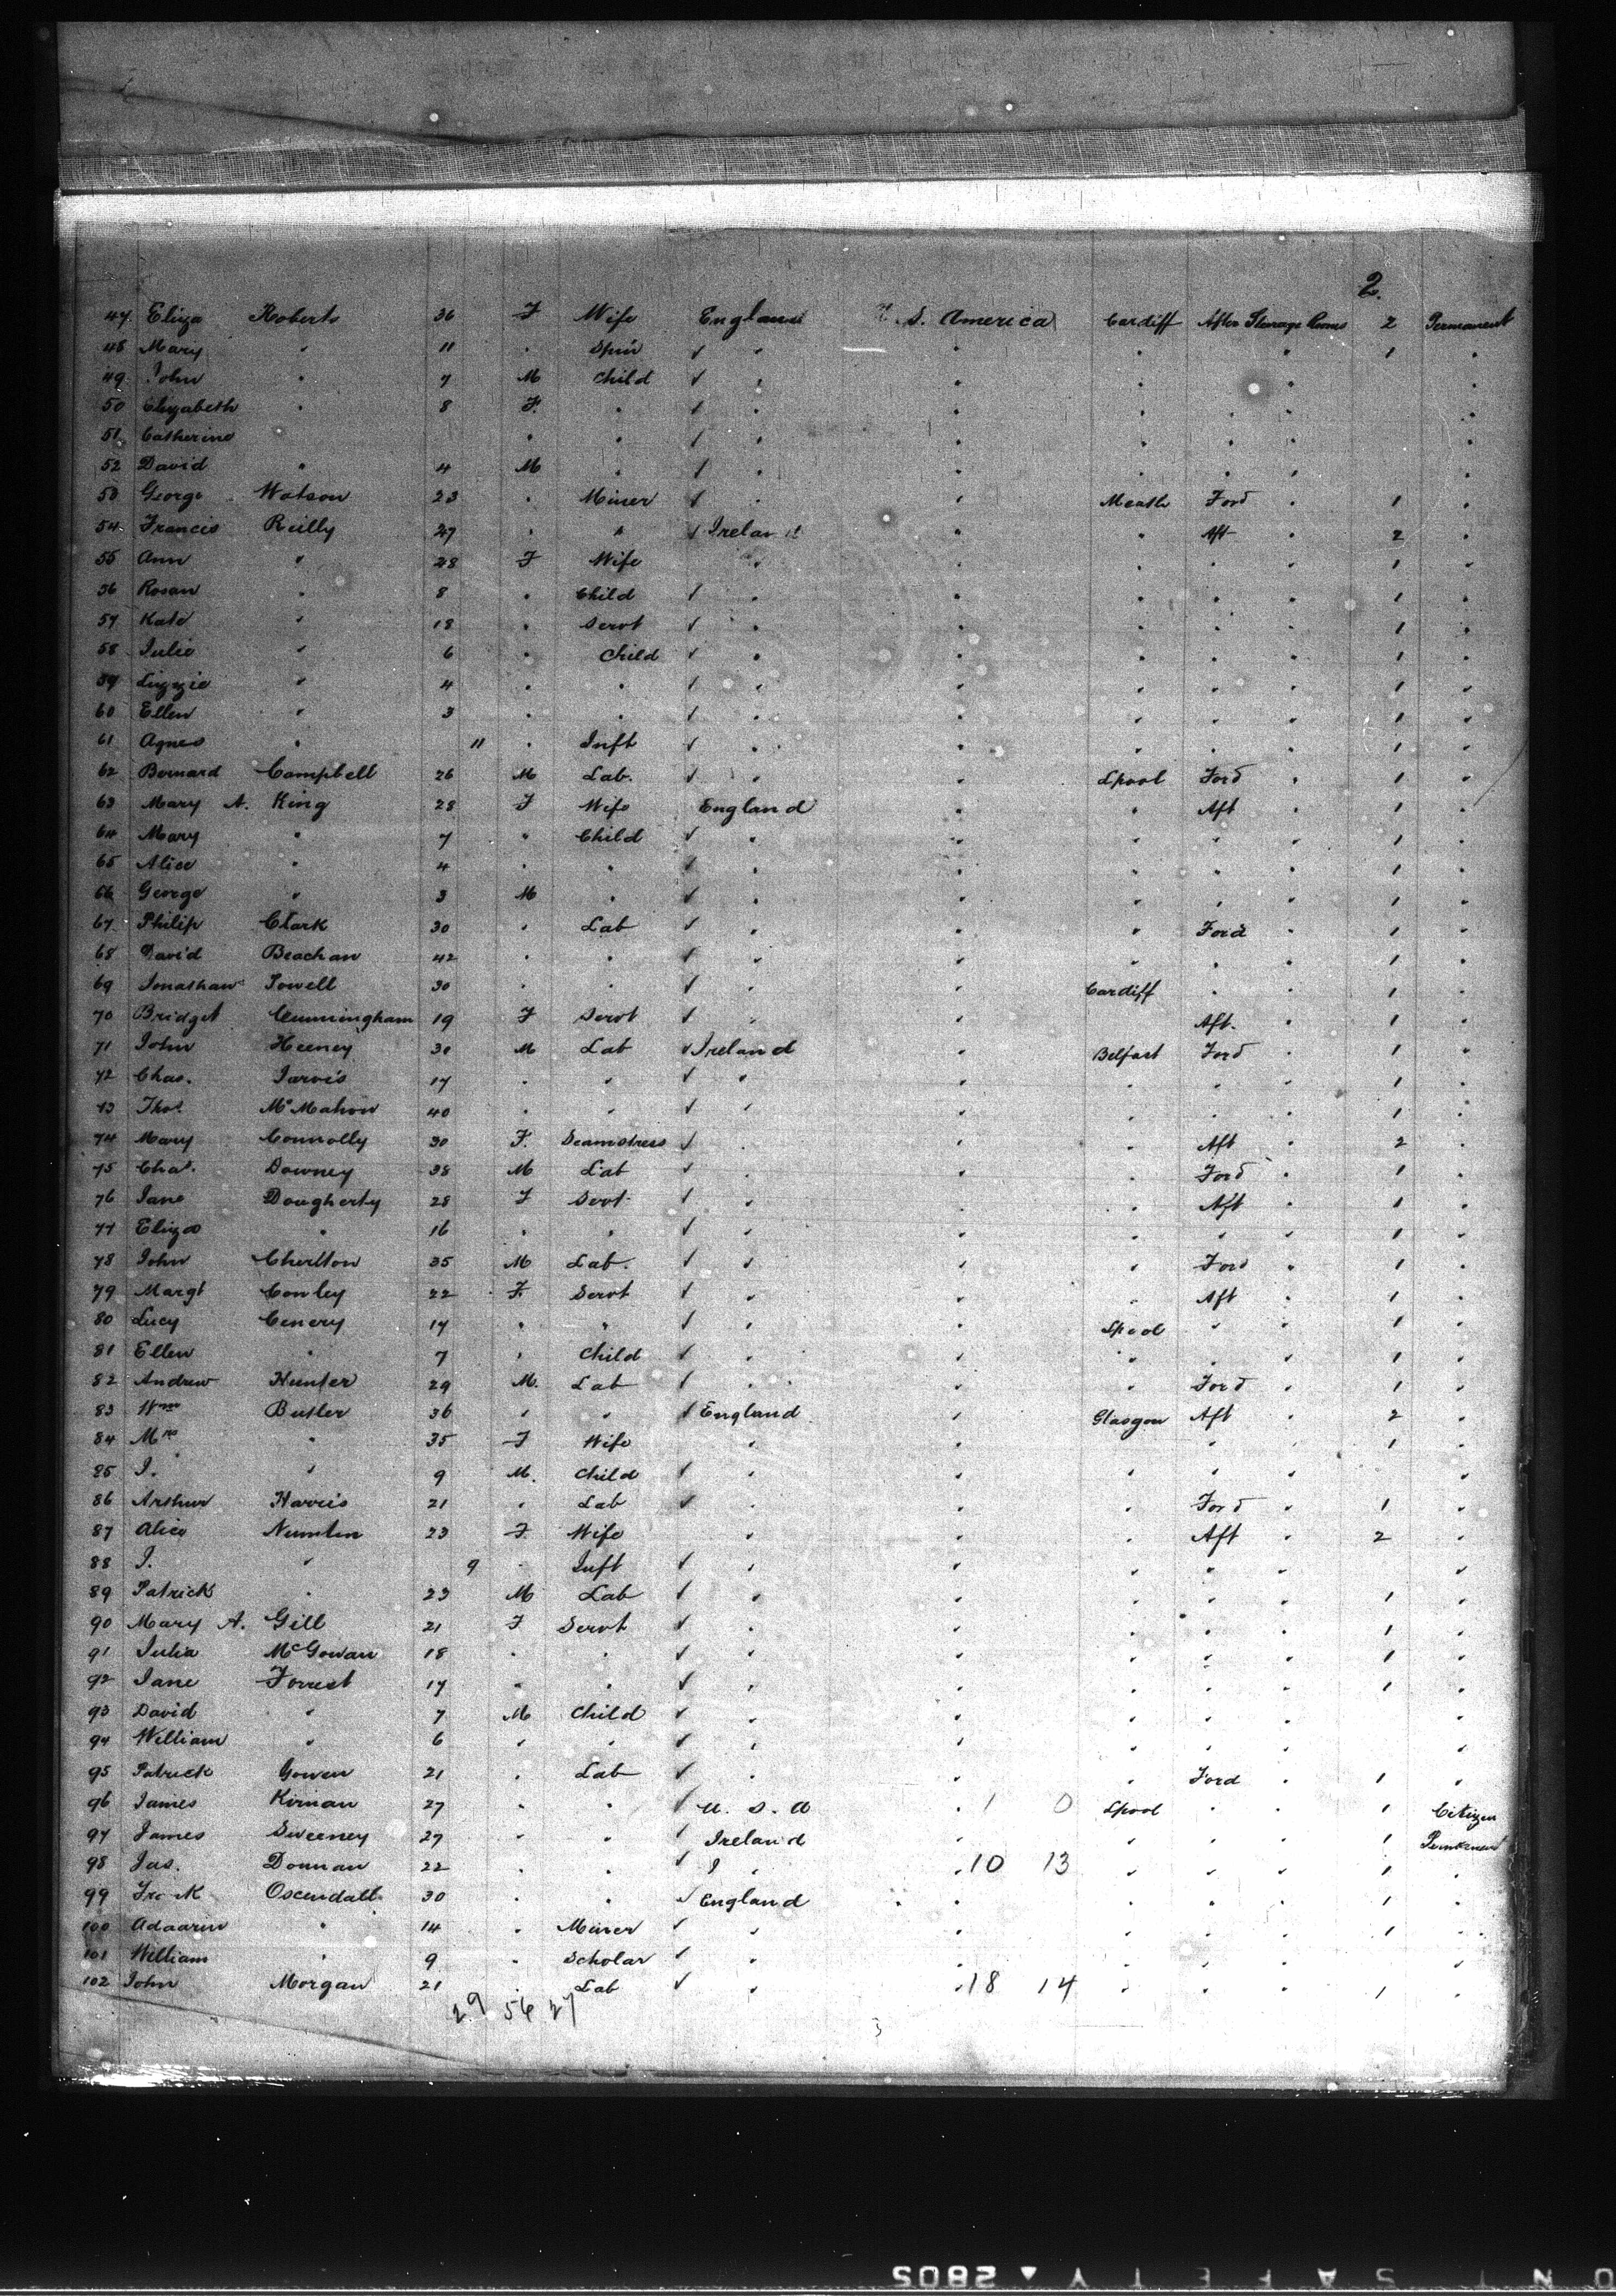 2.
47. Eliza Roberts 36 F Wife England U. S. America Cardiff After Steerage Rooms 2 Permanent
48 Mary " 11 " Spin ✓ " " " " 1 "
49 John " 7 M Child ✓ " " " " "
50 Elizabeth " 8 F. " ✓ " " " " " "
51 Catherine " " ✓ " " " " " "
52 David " 4 M " ✓ " " " " " "
53 George Watson 23 " Miner ✓ " " Meath Ford " 1 "
54 Francis Reilly 27 " " ✓ Ireland " " Aft " 2 "
55 Ann " 28 F Wife " " " " " 1 "
56 Rosan " 8 " Child ✓ " " " " " 1 "
57 Kate " 18 " Servt ✓ " " " " " 1 "
58 Julie " 6 " Child ✓ " " " " " 1 "
59 Lizzie " 4 " " ✓ " " " " " 1 "
60 Ellen " 3 " " ✓ " " " " " 1 "
61 Agnes " 11 " Inft ✓ " " " " " 1 "
62 Bernard Campbell 26 M Lab. ✓ " " Lpool Ford " 1 "
63 Mary A. King 28 F Wife England " " Aft " 1 "
64 Mary " 7 " Child ✓ " " " " " 1 "
65 Alice " 4 " " ✓ " " " " " 1 "
66 George " 3 M " ✓ " " " " " 1 "
67. Philip Clark 30 " Lab ✓ " " " Ford " 1 "
68 David Beachan 42 " " ✓ " " " " " 1 "
69 Jonathan Powell 30 " " ✓ " " Cardiff " " 1 "
70 Bridget Cunningham 19 F Servt ✓ " " Aft. " 1 "
71 John Heeney 31 M Lab ✓ Ireland " Belfast Ford " 1 "
72 Chas. Jarvis 17 " " ✓ " " " " " 1 "
73 Thos. McMahon 40 " " ✓ " " " " 1 "
74 Mary Connolly 30 F. Seamstress ✓ " " " Aft " 2 "
75 Chas. Downey 38 M Lab ✓ " " " Ford " 1 "
76 Jane Dougherty 28 F Servt ✓ " " " Aft " 1 "
77 Eliza " 16 " " ✓ " " " " " 1 "
78 John Cherlton 35 M Lab. ✓ " " " Ford " 1 "
79 Margt Conley 22 F. Servt ✓ " " " Aft " 1 "
80 Lucy Cenery 17 " " ✓ " " Lpool " " 1 "
81 Ellen " 7 " Child ✓ " " " " " 1 "
82 Andrew Hunter 29 M. Lab ✓ " " " Ford " 1 "
83 Wm Butler 36 " " ✓ England " Glasgow Aft " 2 "
84 Mrs " 35 F Wife " " " " 1 "
85 J. " 9 M. Child ✓ " " " " " "
86 Arthur Harris 21 " Lab ✓ " " " Ford " 1 "
87 Alice 23 F Wife " " " Aft " 2 "
88 J. " 9 " Inft ✓ " " " " " "
89 Patrick " 23 M Lab ✓ " " " " " 1 "
90 Mary A. Gill 21 F Servt ✓ " " " " " 1 "
91 Julia McGowan 18 " " ✓ " " " " " 1 "
92 Jane Forrest 17 " " ✓ " " " " " 1 "
93 David " 7 M Child ✓ " " " " " "
94 William " 6 " " ✓ " " " " " "
95 Patrick Gowen 21 " Lab ✓ " " " Ford " 1 "
96 James Kirnan 27 " " ✓ U. S. A " 1 0 Lpool " " 1 Citizen
97 James Sweeney 27 " " ✓ Ireland " " " " 1 Permanent
98 Jas. Donnan 22 " " ✓ " " 10 13 " " " 1 "
99 Oscendall 30 " " ✓ England " " " " 1 "
100 " 14 " Miner ✓ " " " " " 1 "
101 William " 9 " Scholar ✓ " " " " " "
102 John Morgan 21 " Lab ✓ " " 18 14 " " " 1 "
29 56 27
3
SAFETY ▲ 2805